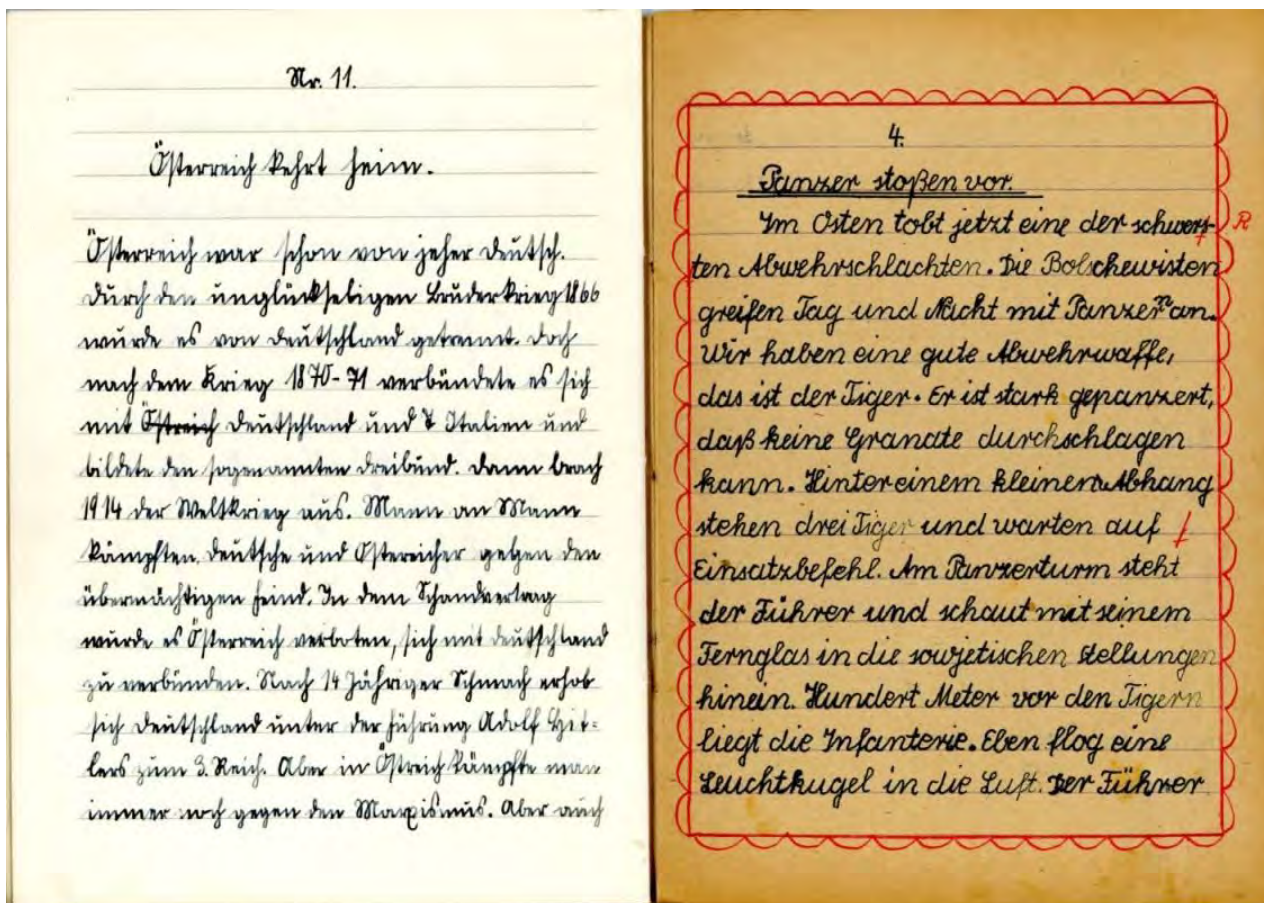 Nr. 11.
Österreich kehrt heim.
Österreich war schon von jeher deutsch.
Durch den unglückseligen Bruderkrieg 1866
wurde es von Deutschland getrennt. Doch
nach dem Krieg 1870-71 verbündete es sich
mit Östreich Deutschland und Italien und
bildete den sogenannten Dreibund. Dann brach
1914 der Weltkrieg aus. Mann an Mann
kämpften Deutsche und Östereicher gegen den
übermächtigen Feind. In dem Schandvertrag
wurde es Österreich verboten, sich mit Deutschland
zu verbünden. Nach 14 Jähriger Schmach erhob
sich Deutschland unter der Führung Adolf Hit=
lers zum 3. Reich. Aber in Östreich kämpfte man
immer noch gegen den Marxismus. Aber auch
4.
Panzer stoßen vor.
Im Osten tobt jetzt eine der schwers- R
ten Abwehrschlachten. Die Bolschewisten
greifen Tag und Nacht mit Panzern an.
Wir haben eine gute Abwehrwaffe,
das ist der Tiger. Er ist stark gepanzert,
daß keine Granate durchschlagen
kann. Hinter einem kleinen Abhang
stehen drei Tiger und warten auf
Einsatzbefehl. Am Panzerturm steht
der Führer und schaut mit seinem
Fernglas in die sowjetischen Stellungen
hinein. Hundert Meter vor den Tigern
liegt die Infanterie. Eben flog eine
Leuchtkugel in die Luft. Der Führer